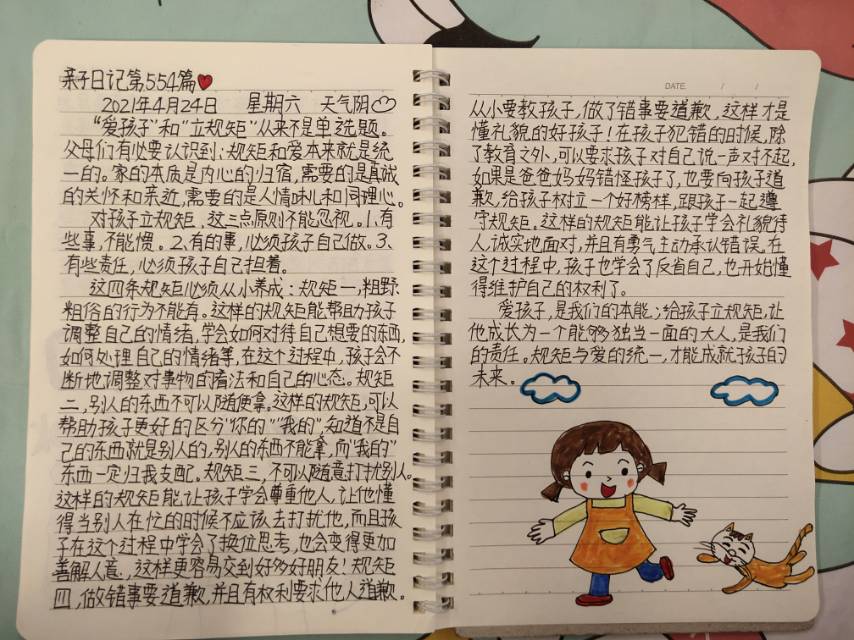 亲子日记第554篇
2021年4月24日 星期六 天气阴
“爱孩子”和“立规矩”从来不是单选题。
父母们有必要认识到:规矩和爱本来就是统
一的。家的本质是内心的归宿,需要的是真诚
的关怀和亲近,需要的是人情味儿和同理心。
对孩子立规矩,这三点原则不能忽视。1、有
些事,不能惯。2、有的事,必须孩子自己做。3、
有些责任,必须孩子自己担着。
这四条规矩必须从小养成:规矩一,粗野
粗俗的行为不能有。这样的规矩能帮助孩子
调整自己的情绪,学会如何对待自己想要的东西,
如何处理自己的情绪等,在这个过程中,孩子会不
断地调整对事物的看法和自己的心态。规矩
二,别人的东西不可以随便拿。这样的规矩,可以
帮助孩子更好的区分“你的”“我的”,知道不是自
己的东西就是别人的,别人的东西不能拿,而“我的”
东西一定归我支配。规矩三,不可以随意打扰别人。
这样的规矩能让孩子学会尊重他人,让他懂
得当别人在忙的时候不应该去打扰他,而且孩
子在这个过程中学会了换位思考,也会变得更加
善解人意,这样更容易交到好多好朋友!规矩
四,做错事要道歉,并且有权利要求他人道歉。
DATE / /
从小要教孩子,做了错事要道歉,这样才是
懂礼貌的好孩子!在孩子犯错的时候,除
了教育之外,可以要求孩子对自己说一声对不起,
如果是爸爸妈妈错怪孩子了,也要向孩子道
歉,给孩子树立一个好榜样,跟孩子一起遵
守规矩。这样的规矩能让孩子学会礼貌待
人,诚实地面对,并且有勇气主动承认错误。在
这个过程中,孩子也学会了反省自己,也开始懂
得维护自己的权利了。
爱孩子,是我们的本能;给孩子立规矩,让
他成长为一个能够独当一面的大人,是我们
的责任。规矩与爱的统一,才能成就孩子的
未来。